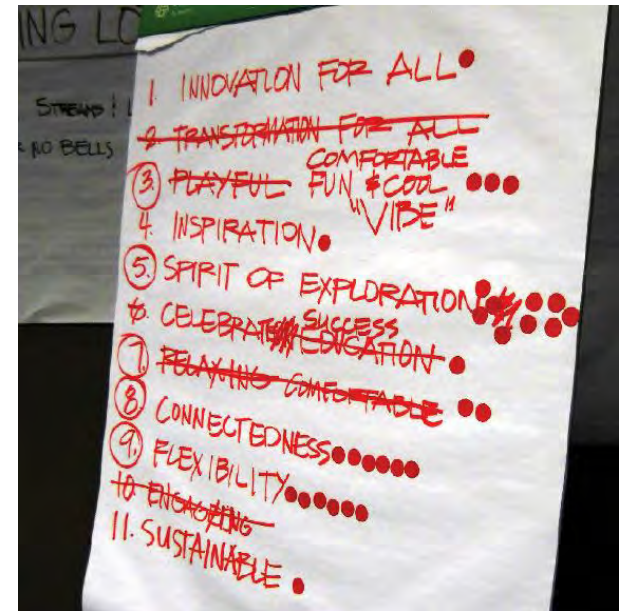 ING LO
STREAMS !
NO BELLS
1. INNOVATION FOR ALL
2. TRANSFORMATION FOR ALL
COMFORTABLE
3. PLAYFUL FUN & COOL
"VIBE"
4. INSPIRATION
5. SPIRIT OF EXPLORATION
SUCCESS
6. CELEBRATE EDUCATION
7. RELAXING COMFORTABLE
8. CONNECTEDNESS
9. FLEXIBILITY
10 ENGAGING
11. SUSTAINABLE